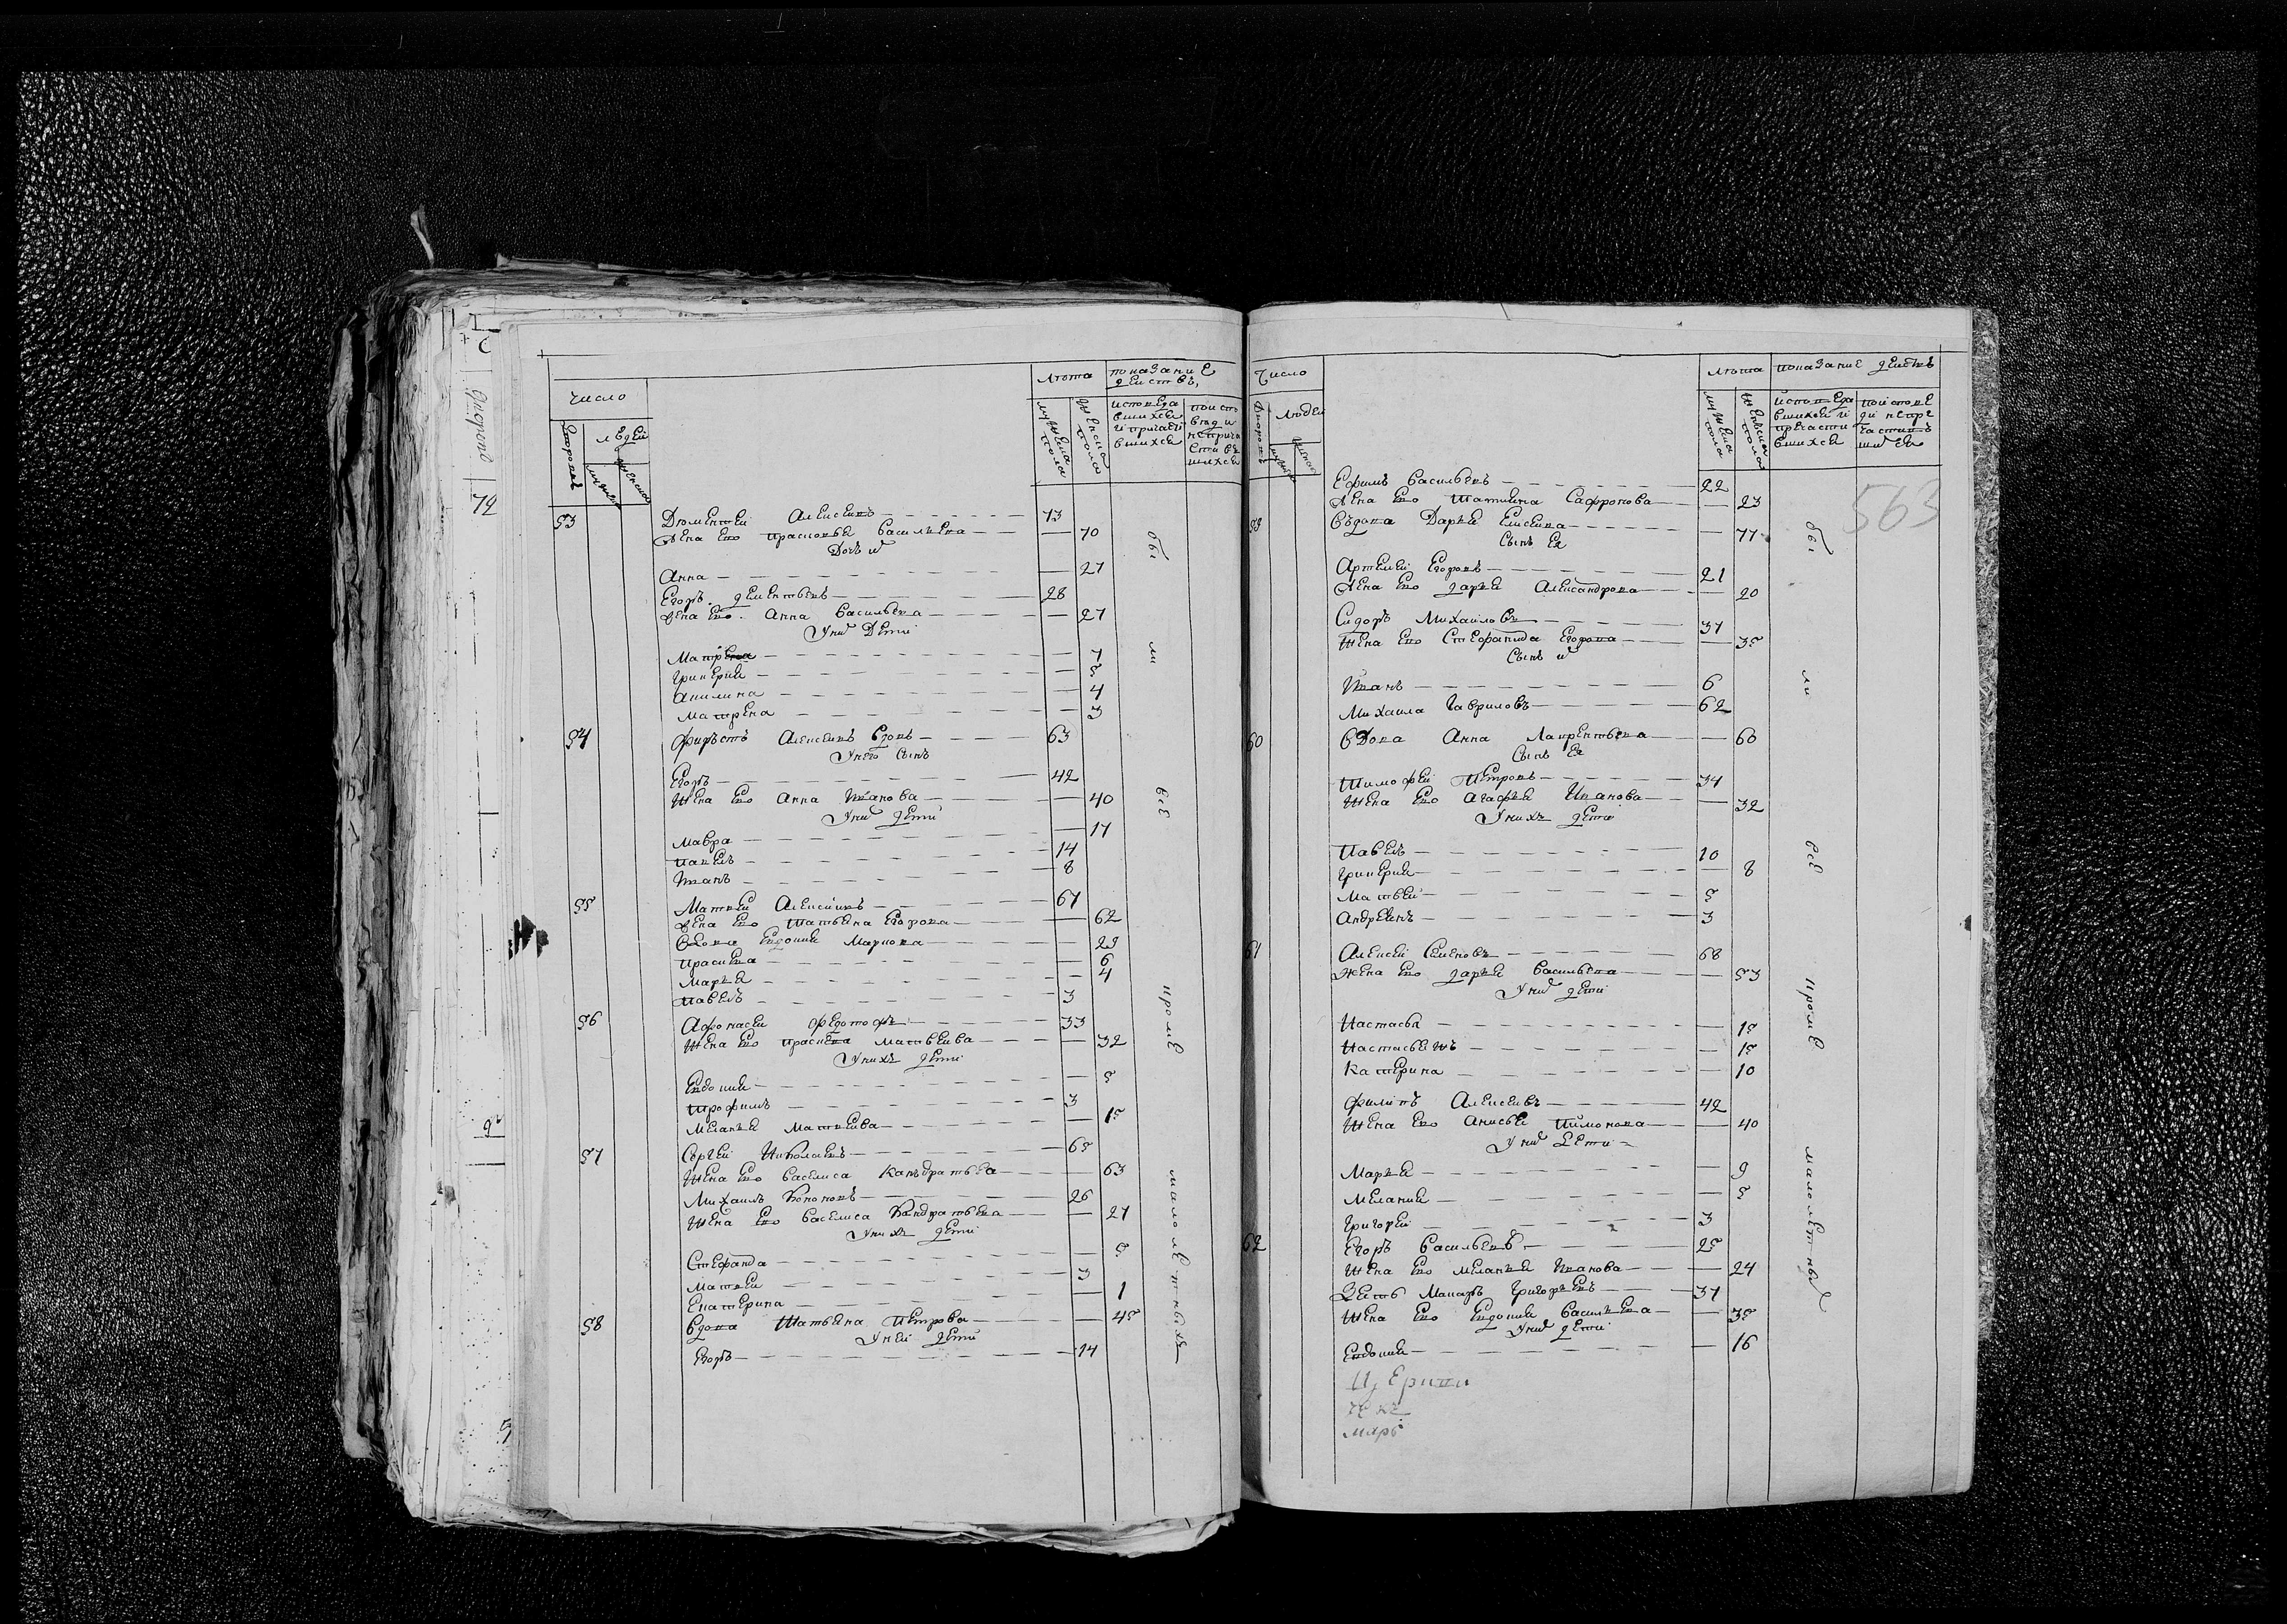 Число
лѣта
показание
действъ,
дворовъ
людей
мужска
женска
мужска
пола
женска
пола
исповеда
вшихся
и причасти
вшихся
поисто
вѣди
неприча
стивъ
шихся
53
Дементей Алексеивъ 73
Жена Ево Прасковья Василѣева 70
Дочь их
Анна 27
Егоръ Дементьевъ 28
Жена Ево Анна Васильева 27
У них Дети
Матрена 7
5
Акилина 4
Матрена 3
54 Алексеивъ Вдовъ 63
У него Сынъ
Егоръ 42
Жена Ево Анна Иванова 40
У них дети
Мавра 17
Павелъ 14
Иванъ 8
55 Матвей Алексеивъ 67
Жена Ево Татьяна Егорова 62
Вдова Евдокия Маркова 29
6
Марья 4
Павелъ 3
56 Афонасей Федотофъ 33
Жена Ево Матвеева 32
У нихъ дети
Евдокия 5
Трофимъ 3
Меланья Матвеива 15
57 Сергей Николаевъ 65
Жена Ево Василиса Канъдратьева 63
Михаилъ Кононовъ 26
Жена Ево Василиса Кандратьева 27
У нихъ дети
Стефанида 5
Матвей 3
Екатерина 1
58 Вдова Татьяна Петрова 45
У ней дети
Егоръ 14
бы
ли
всѣ
кромѣ
малолѣтныхъ
Число
лѣта
показание действъ
дворовъ
Людей
мужска
пола
женска
пола
исповеда
вшихся и
причасти
вшихся
поистове
ди непри
частивъ
шихся
563
Ефимъ Васильевъ 22
Жена Ево Татияна Сафронова 23
Въдова Дарья Елисеива 77
Сынъ Ея
Артемей Егоровъ 21
Жена Ево Дарья Александрова 20
Сидоръ Михайловъ 37
Жена Ево Стефанида Егорова 35
Сынъ их
Иванъ 6
Михаила Гавриловъ 62
60 Вдова Анна Лаврентьева 60
Сынъ Ея
Тимофей Петровъ 34
Жена Ево Агафья Иванова 32
У нихъ дети
Павелъ 10
8
Матвей 5
Андреянъ 3
61 Алексей Семеновъ 68
Жена Ево Дарья Васильева 53
У них дети
Настасья 15
15
Катерина 10
Филипъ Алексеивъ 42
Жена Ево Анисья Тимонова 40
У них Дети
Марья 9
Мелания 5
Григорей 3
62 Егоръ Васильевъ 25
Жена Ево Меланья Иванова 24
Зеть Макаръ Григорьевъ 37
Жена Ево Евдокия Васильева 35
У них дети
Евдокия 16
бы
ли
всѣ
кромѣ
малолетных